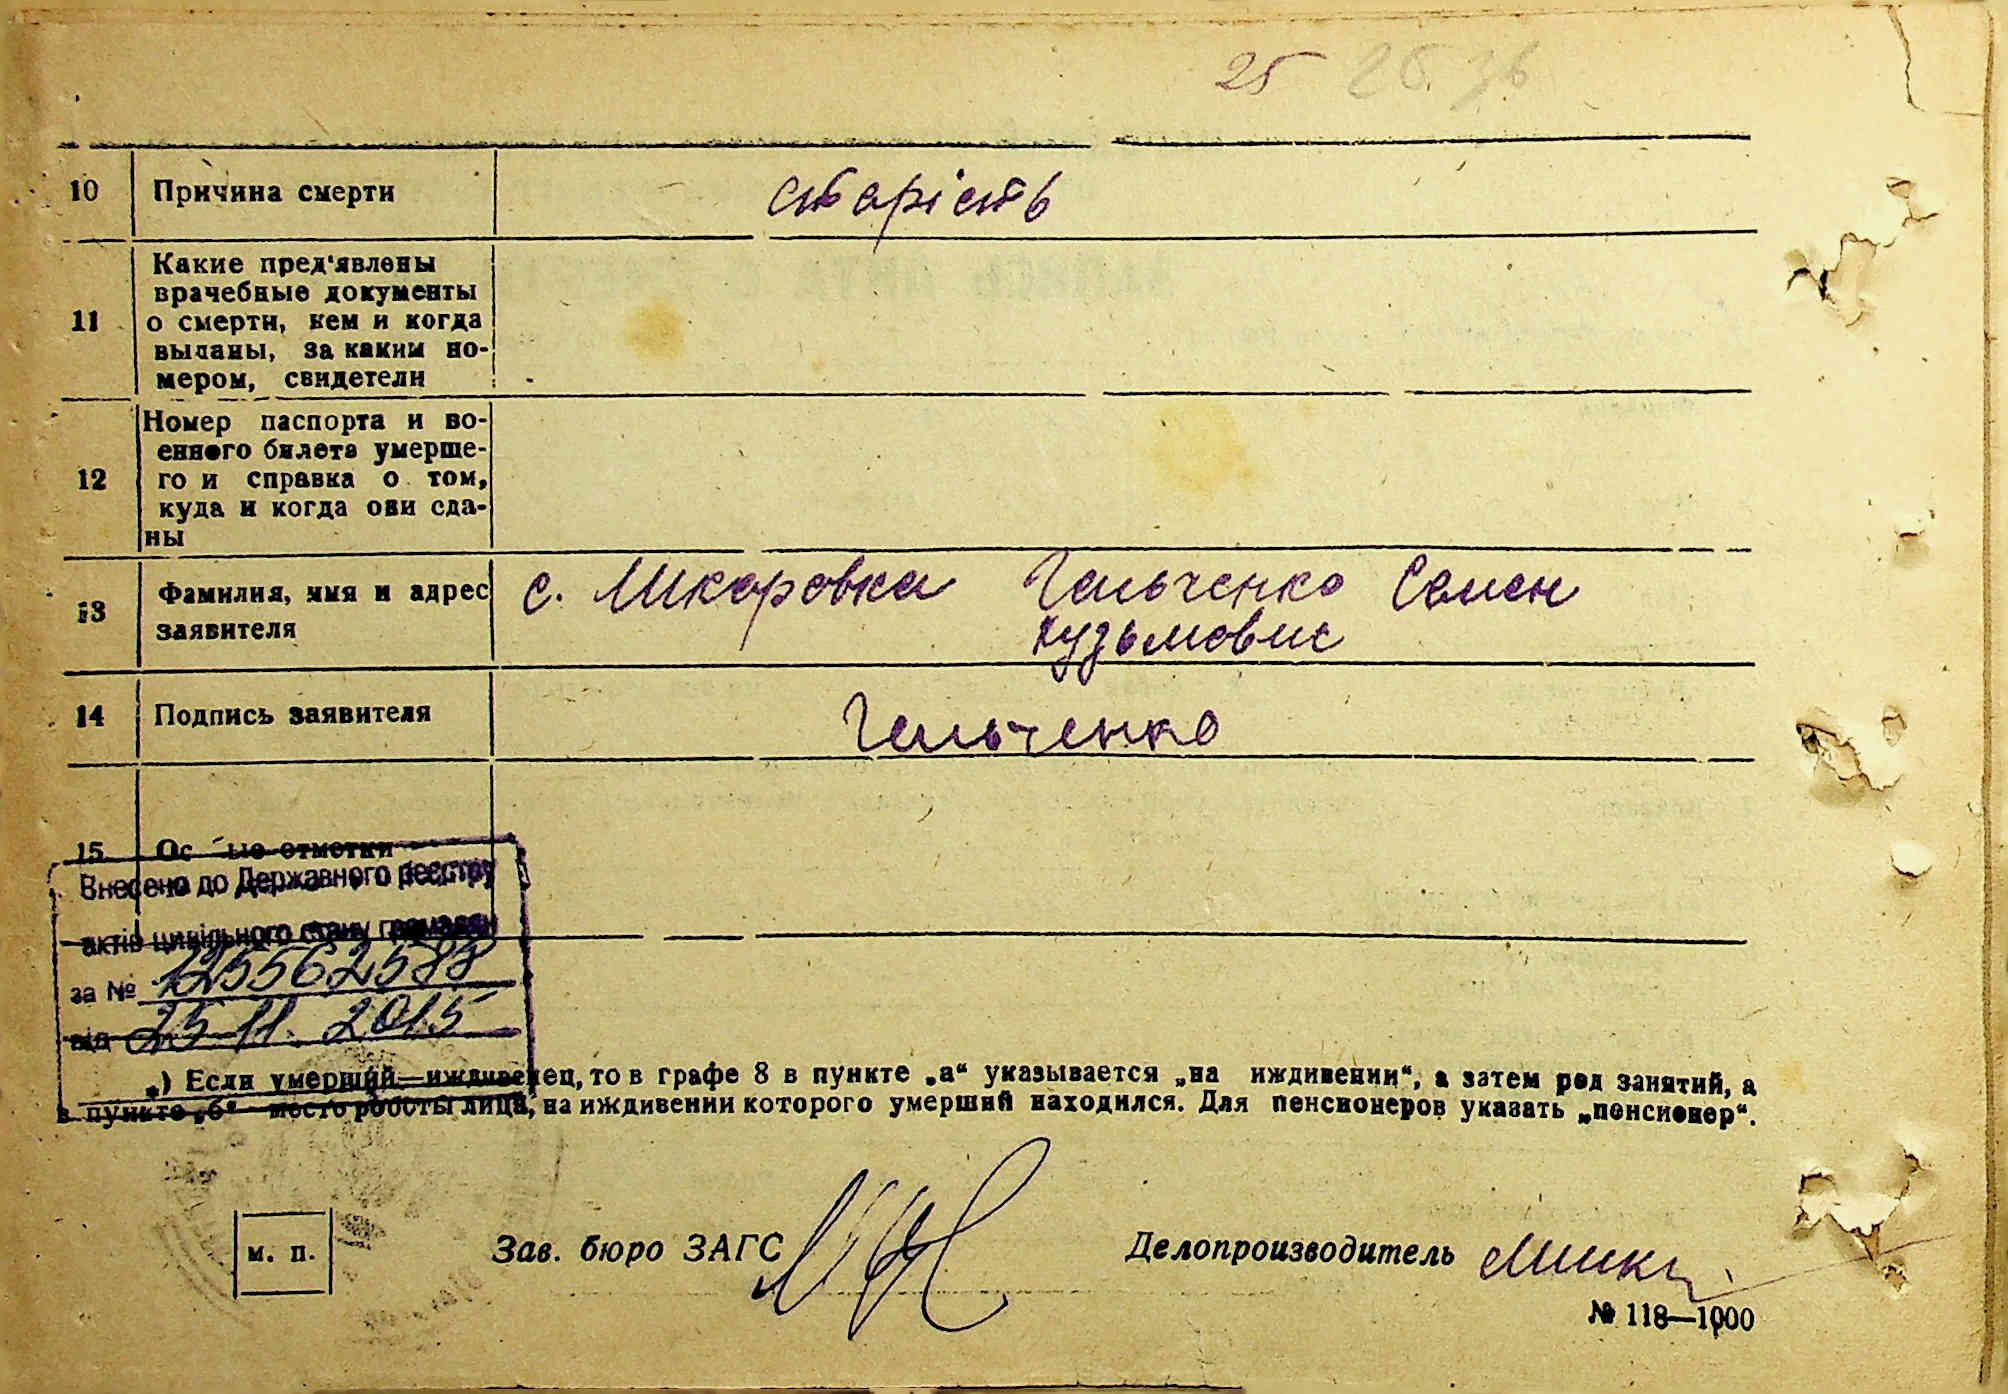 25 25. 36
10 Причина смерти старість
Какие пред'явлены
врачебные документы
11 о смерти, кем и когда
выданы, за каким но-
мером, свидетели
Номер паспорта и во-
енного билета умерше-
12 го и справка о том,
куда и когда они сда-
ны
13 Фамилия, имя и адрес с. Шкаровка Гальченко Семен
заявителя Кузьмович
14 Подпись заявителя Гальченко
15 Особые отметки
Внесено до Державного реєстру
актів цивільного стану громадян
за № 1255562588
від 25.11.2015
*) Если умерший—иждивенец, то в графе 8 в пункте „а“ указывается „на иждивении“, а затем род занятий, а
в пункте „б“ место работы лица, на иждивении которого умерший находился. Для пенсионеров указать „пенсионер“.
м. п. Зав. бюро ЗАГС Делопроизводитель
№ 118—1000